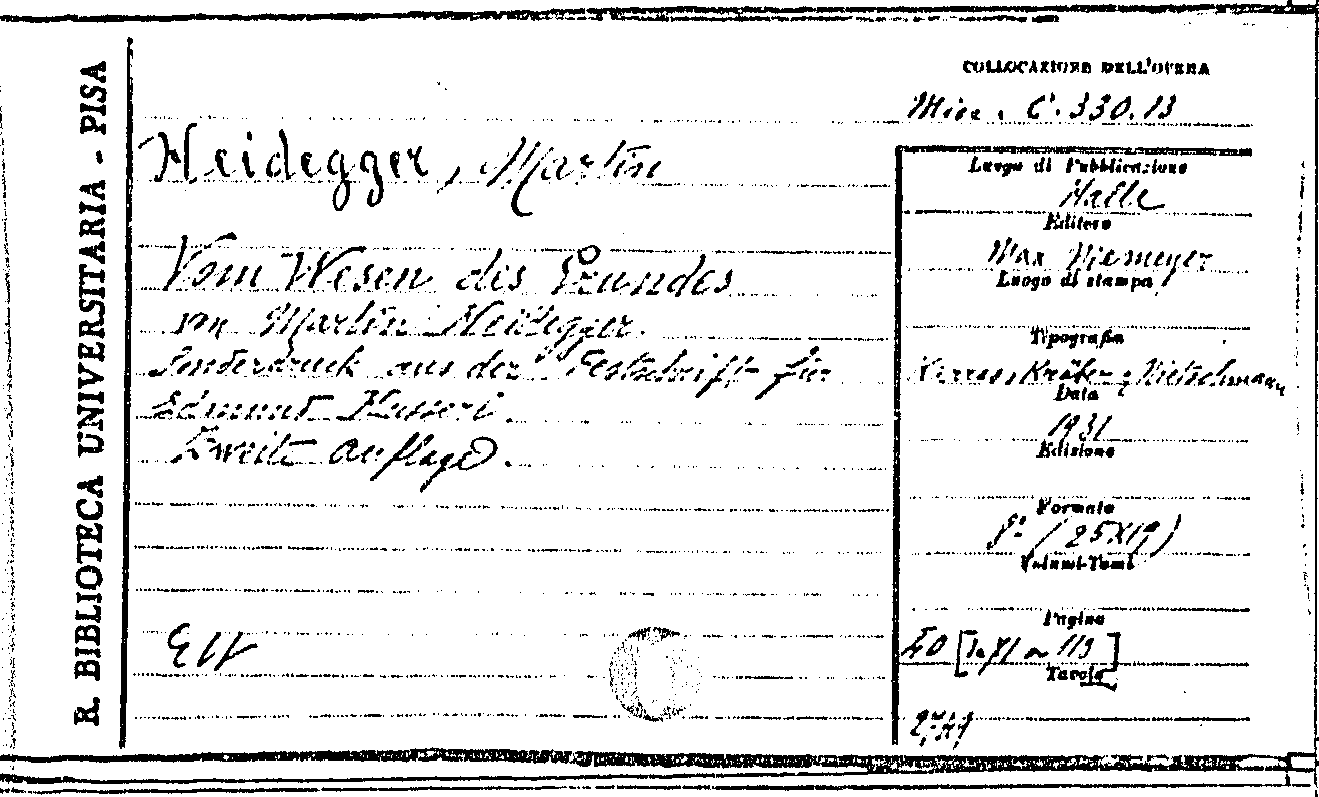 R. BIBLIOTECA UNIVERSITARIA - PISA
COLLOCAZIONE DELL'OPERA
Misc. C. 330.13
Heidegger, Martin
Vom Wesen des Grundes
von Martin Heidegger.
Sonderdruck aus der Festschrift für
Edmund Husserl.
Zweite Auflage.
Luogo di Pubblicazione
Halle
Editore
Max Niemeyer
Luogo di stampa
Tipografia
Karras, Kröber, Nietschmann
Data
1931
Edizione
Formato
8º (25X19)
Volumi-Tomi
Pagine
40 [da 71 a 113]
Tavole